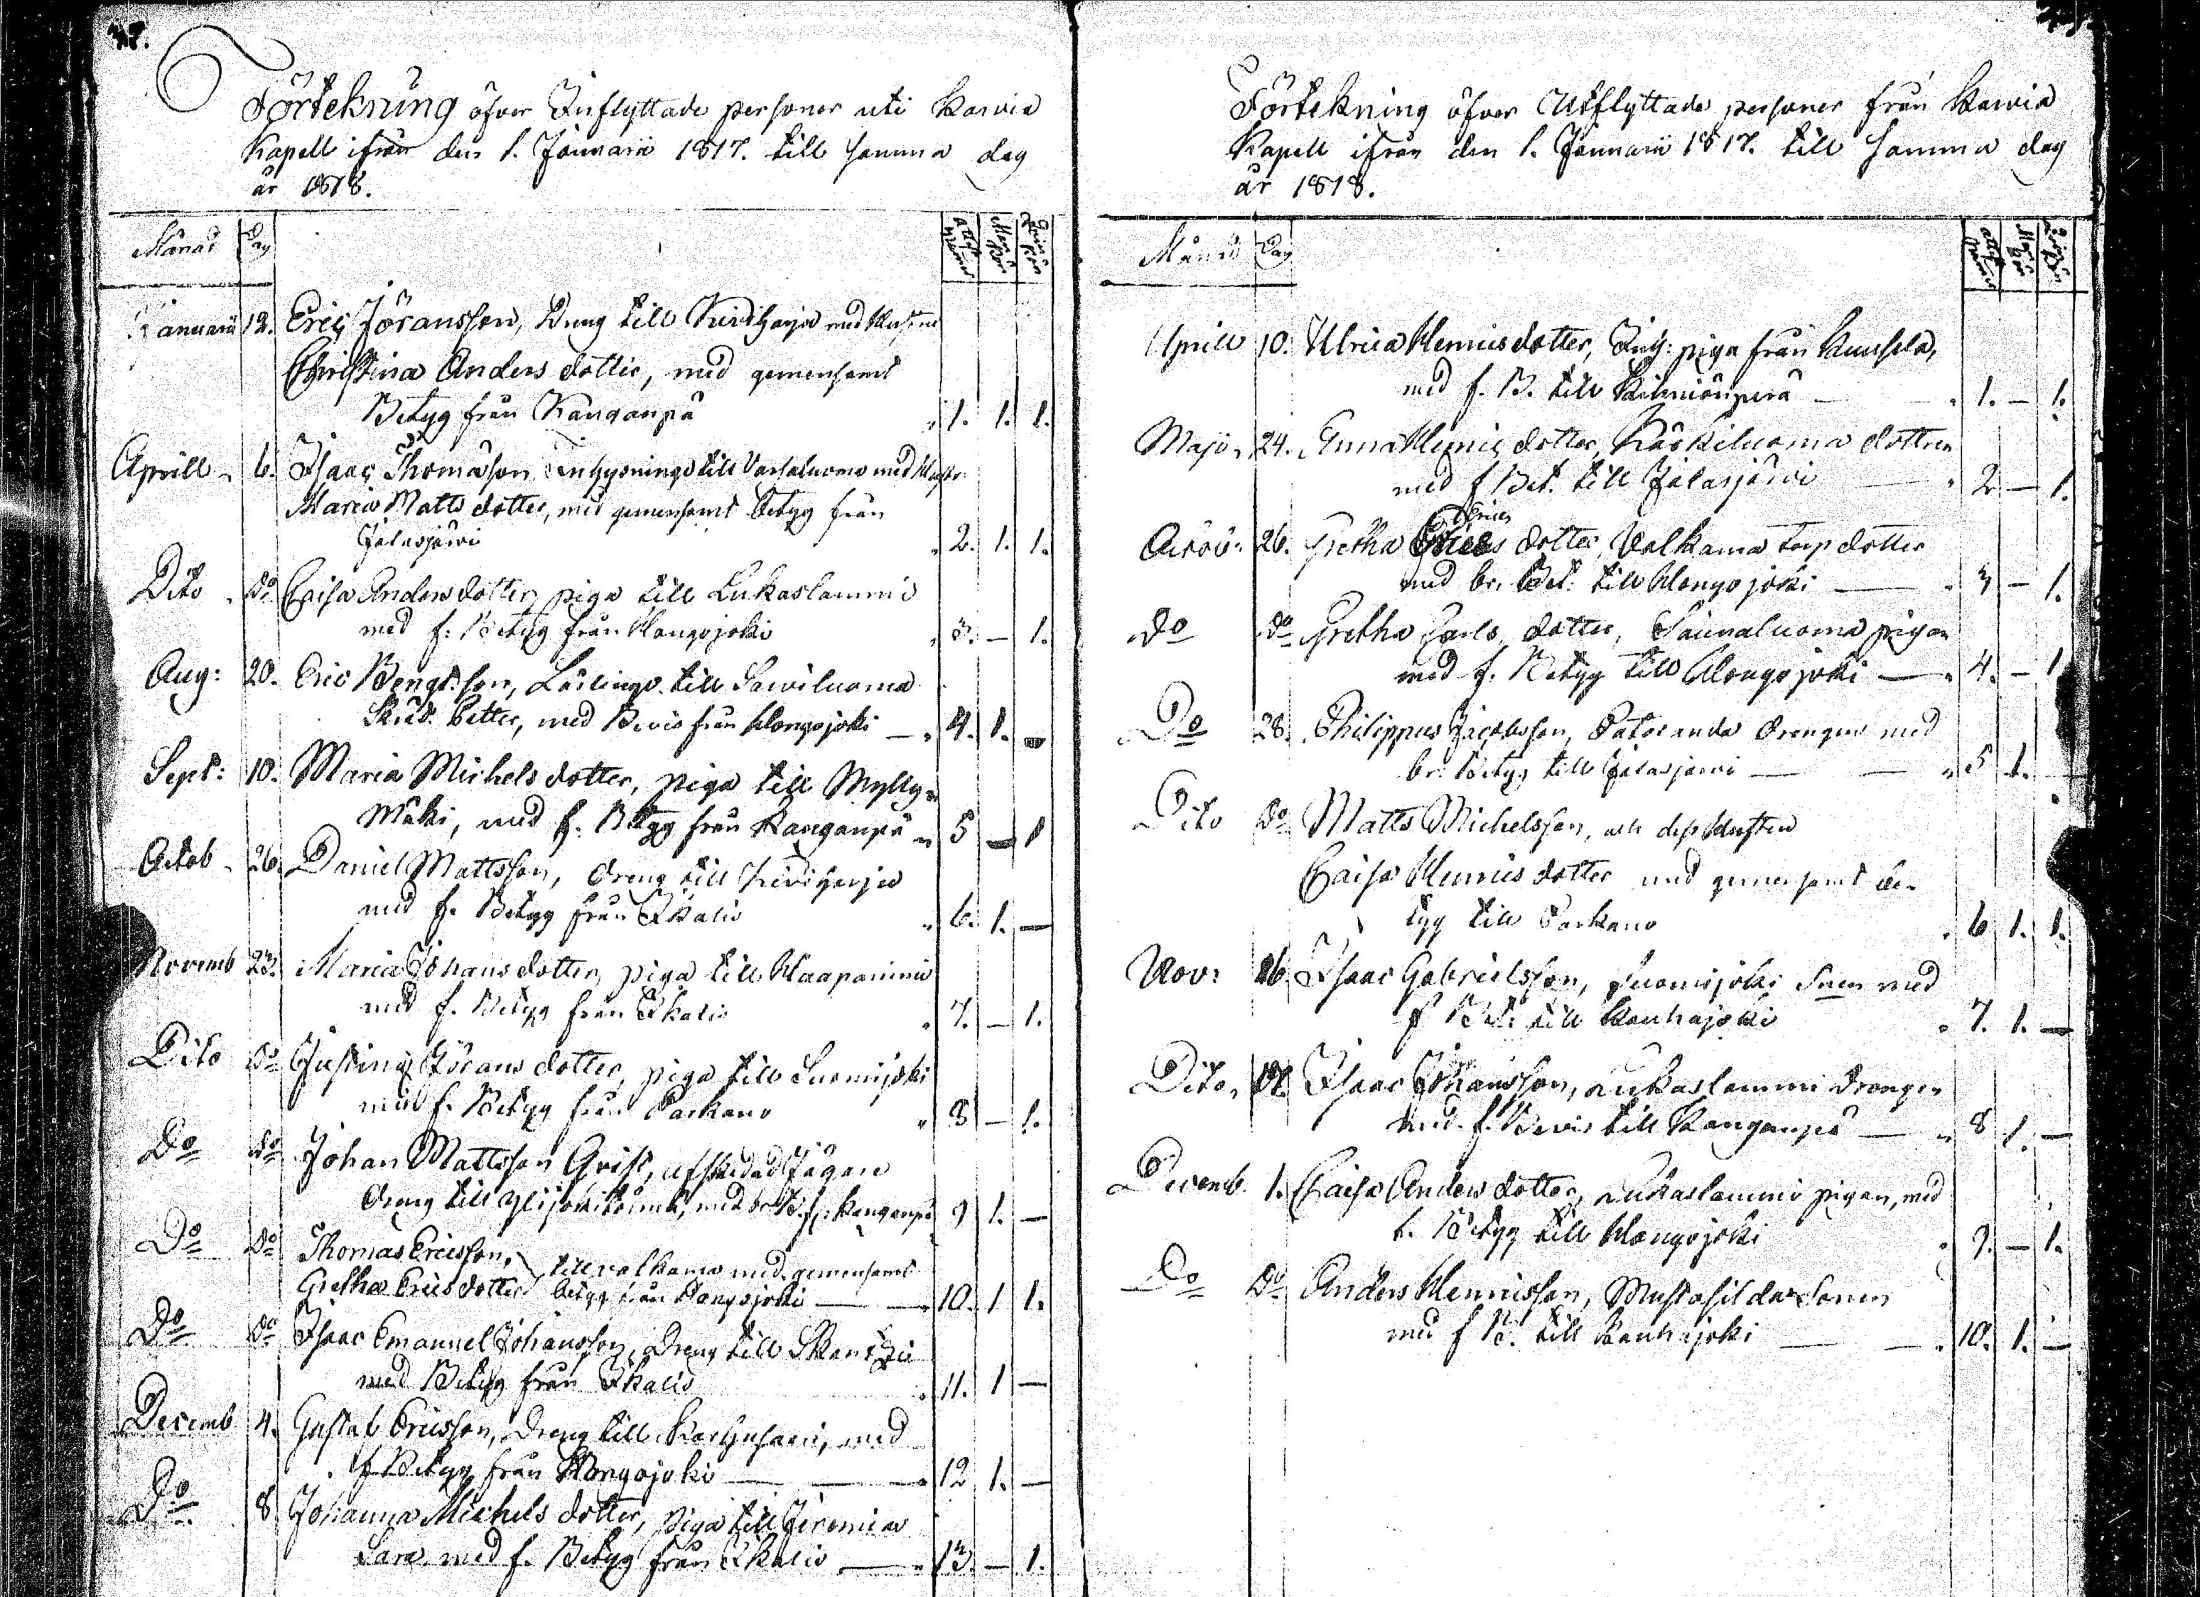 Förtekning öfver Inflyttade personer uti Karvia
Kapell ifrån den 1. Januarii 1817. till samma dag
år 1818.
Månad Dag
Januarii 12. Eric Jöransson, Dreng till med Hustru
Christina Anders dotter, med gemensamt
Betyg från Kanganpä 1. 1. 1.
Aprill 6. Isaac Thomasson Inhysninge till med Hustr
Maria Matts dotter, med gemensamt betyg från
Jalasjärvi 2. 1. 1.
Dito Do Caisa Anders dotter, piga till Lukaslammi
med f. Betyg från Hongojoki 3. — 1.
Aug: 20. Eric Bengtsson, Lärlinge till Sawiluoma
med Bevis från Hongojoki — 4. 1. —
Sept: 10. Maria Michels dotter, piga till Mylly-
mäki, med f. Betyg från Kanganpä 5 — 1
Octob 26. Daniel Mattsson, dreng till
med f. Betyg från Ikalis 6. 1. —
Novemb 23. Maria Johans dotter, piga till Haapaniemi
med f. Betyg från Ikalis 7. — 1.
Dito Do Justina Jörans dotter, piga till Suomijoki
med f. Betyg från Parkano 8 — 1.
Do Do Johan Mattsson Grift, afskedad Jägare
dreng till med Kanganpä 9 1. —
Do Do Thomas Ericsson, till Valkama med gemensamt
Gretha Erics dotter betyg från Hongojoki — 10. 1 1.
Do Do Isaac Emanuel Johansson, Dreng till Skantzis
med Betyg från Ikalis 11. 1 —
Decemb 4. Gustaf Ericsson, Dreng till Karhusaari, med
f Betyg från Hongojoki — 12 1. —
Do 8 Johanna Michels dotter, piga till Jeremias
Sara med f. Betyg från Ikalis — 13. — 1.
Förtekning öfver Utflyttade personer från Karvia
Kapell ifrån den 1. Januarii 1817. till samma dag
år 1818.
Månad Dag
Aprill 10. Ulrica Henrics dotter, Inh: piga från
med f. B. till Kihniönperä — 1. — 1.
Maji 24. Anna Henrics dotter, Käskiluoma dottren
med f Bet. till Jalasjärvi — 2 — 1.
Octob: 26. Gretha Erics dotter, Valkama torp dotter
med br. Bet: till Hongojoki — 3 — 1.
do do Gretha Carls dotter, Saunaluoma pigan
med f. Betyg till Hongojoki — 4. — 1
Do 28. Philippus Jacobsson, Patoranda drengen med
br. Betyg till Jalasjärvi — 5 1. —
Dito Do Matts Michelsson, och dess Hustru
Caisa Henrics dotter med gemensamt be-
tyg till Parkano 6 1. 1.
Nov: 16. Isaac Gabrielsson, Suomijoki Sonen med
f Bet: till Kauhajoki 7. 1. —
Dito Isaac Johansson, Lukaslammi drengen
med f. Bevis till Kanganpä — 8 1. —
Decemb. 1. Caisa Anders dotter, Lukaslammi pigan, med
f. Betyg till Hongojoki 9. — 1.
Do Do Anders Henricsson, Mustasilda Sonen
med f B. till Kauhajoki — 10. 1. —